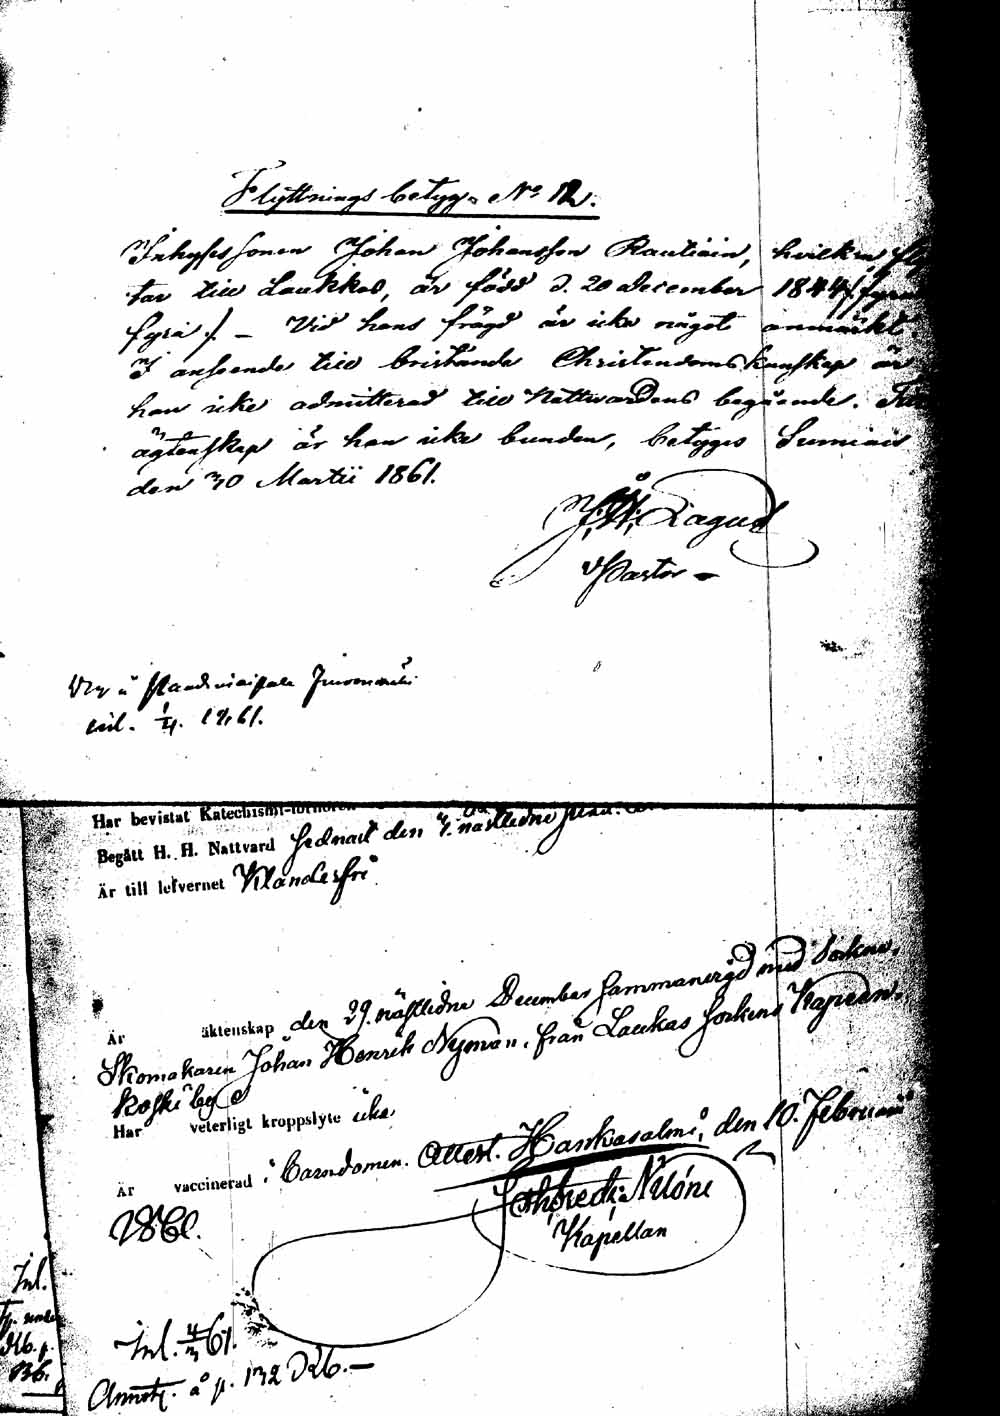 Flyttnings betyg. No 12.
Inhyses sonen Johan Johansson Rautiain, hvilken fly
tar till Laukkas, är född d. 20 December 1844 (fyra
fyra). – Vid hans frägd är icke något anmärkt.
I anseende till bristande Christendoms kunskap är
han icke admitterad till Nattwardens begående. Från
ägtenskap är han icke bunden, betygas Sumiais
den 30 Martii 1861.
Lagus
vPastor –
inl. 1/4. 1861.
Har bevistat Katechismi-förhören
Begått H. H. Nattvard sednast den 7. nästledne
Är till lefvernet Klanderfri
Är äktenskap den 29. nästledne December sammanvigd med Socken
Skomakaren Johan Henrik Nyman, från Laukas Sockens Kapeen
koski by
Har veterligt kroppslyte icke
Är vaccinerad i barndomen. Attest. Hankasalmi, den 10. Februarii
1861.
Kapellan
Inl.
Inl. 4/3 61.
Annot. å p. 132 Kb. –